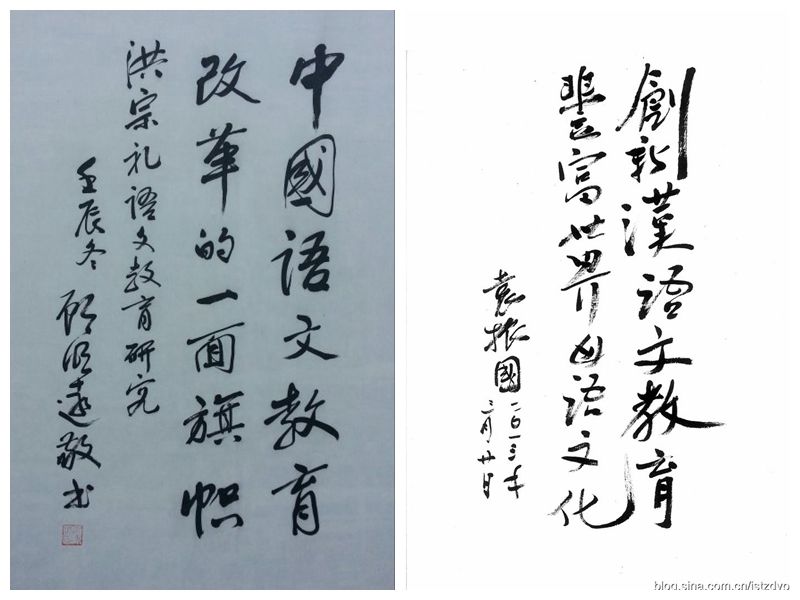 中國语文教育
改革的一面旗帜
洪宗礼语文教育研究
壬辰冬 顾明远敬书
創新漢语文教育
豐富世界母语文化
袁振國 二〇一三年
二月廿日
blog.sina.com.cn/jstzdyp